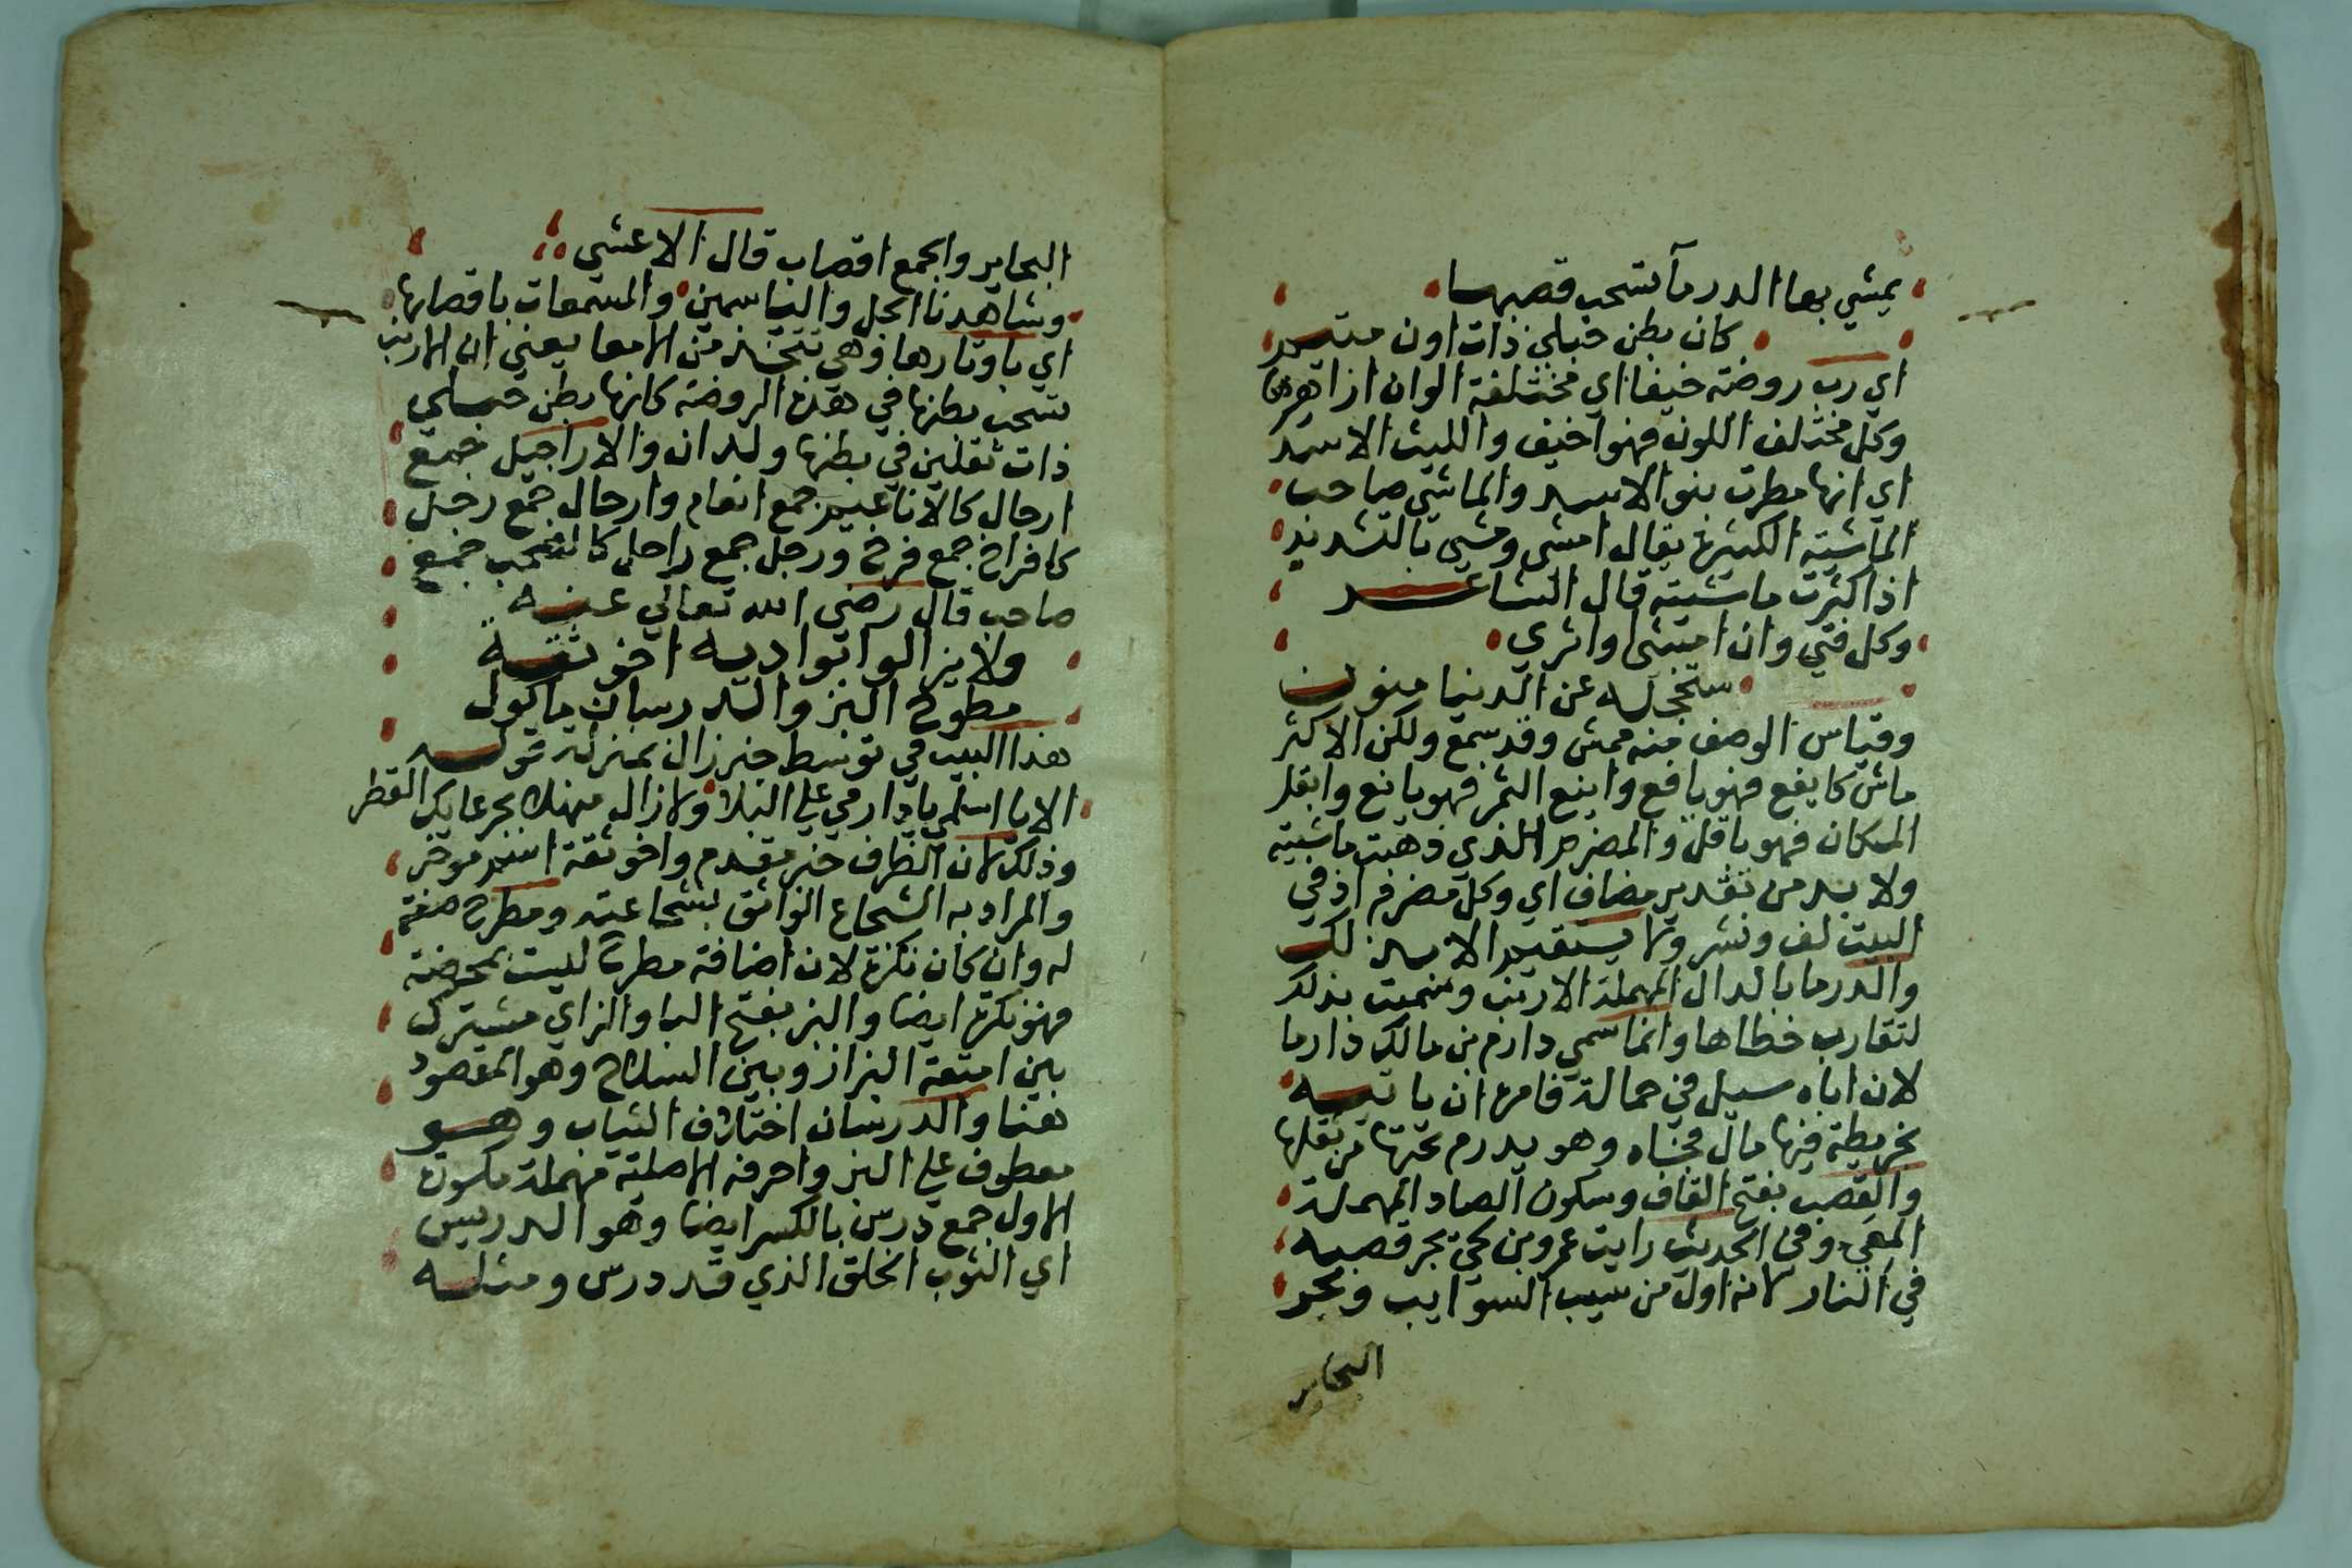 يمشي بها الدرمآ تسحب قصبها
كان بطن حبلي ذات اون متيم
اي رب روضة خيفا اي مختلفة الوان ازاهرها
وكل مختلف اللون فهو اخيف والليث الاسد
اي انها مطرت بنو الاسد والماشي صاحب
الماشية الكثيرة يقال امشي ومشي بالتشديد
اذا كثرت ماشيته قال الشاعر
وكل فتي وان امشي واثري
ستخلجه عن الدنيا منون
وقياس الوصف منه ممش وقد سمع ولكن الاكثر
ماش كايفع فهو يافع واينع الثمر فهو يانع وابقل
المكان فهو باقل والمصرم الذي ذهبت ماشيته
ولا بد من تقدير مضاف اي وكل مصرم اذ في
البيت لف ونشر ولا يستقيم الا بذلك
والدرما بالدال المهملة الارنب وسميت بذلك
لتقارب خطاها وانما سمي دارم بن مالك دارما
لان اباه سيل في حمالة فامره ان ياتيه
بخريطة فيها مال فجاه وهو يدرم تحتها من ثقلها
والقصب بفتح القاف وسكون الصاد المهملة
المعي وفي الحديث رايت عمرو بن لحي يجر قصبه
في النار لانه اول من سيب السوايب وبحر
البحاير
البحاير والجمع اقصاب قال الاعشي
وشاهدنا الجل والياسمين والمسمعات باقصابها
اي باوتارها وهي تتخذ من الامعا يعني ان الارنب
تسحب بطنها في هذه الروضة كانها بطن حبلي
ذات ثقلين في بطنها ولدان والاراجيل جمع
ارجال كالاناعيم جمع انعام وارجال جمع رجل
كافراخ جمع فرخ ورجل جمع راجل كالصحب جمع
صاحب قال رضي الله تعالي عنه
ولا يزال بواديه اخو ثقة
مطرح البز والدرسان ماكول
هذا البيت في توسط خبر زال بمنزلة قوله
الا يا اسلمي يا دار مي علي البلا ولا زال منهلا بجرعايك القطر
وذلك لان الظرف خبر مقدم واخو ثقة اسم موخر
والمراد به الشجاع الواثق بشجاعته ومطرح صفة
له وان كان نكرة لان اضافة مطرح ليست بمحضة
فهو نكرة ايضا والبز بفتح البا والزاي مشترك
بين امتعة البزاز وبين السلاح وهو المقصود
هنا والدرسان اختلاف الثياب وهو
معطوف علي البز واحرفه الاصلية مهملة مكسورة
الاول جمع درس بالكسر ايضا وهو الدريس
اي الثوب الخلق الذي قد درس ومثله